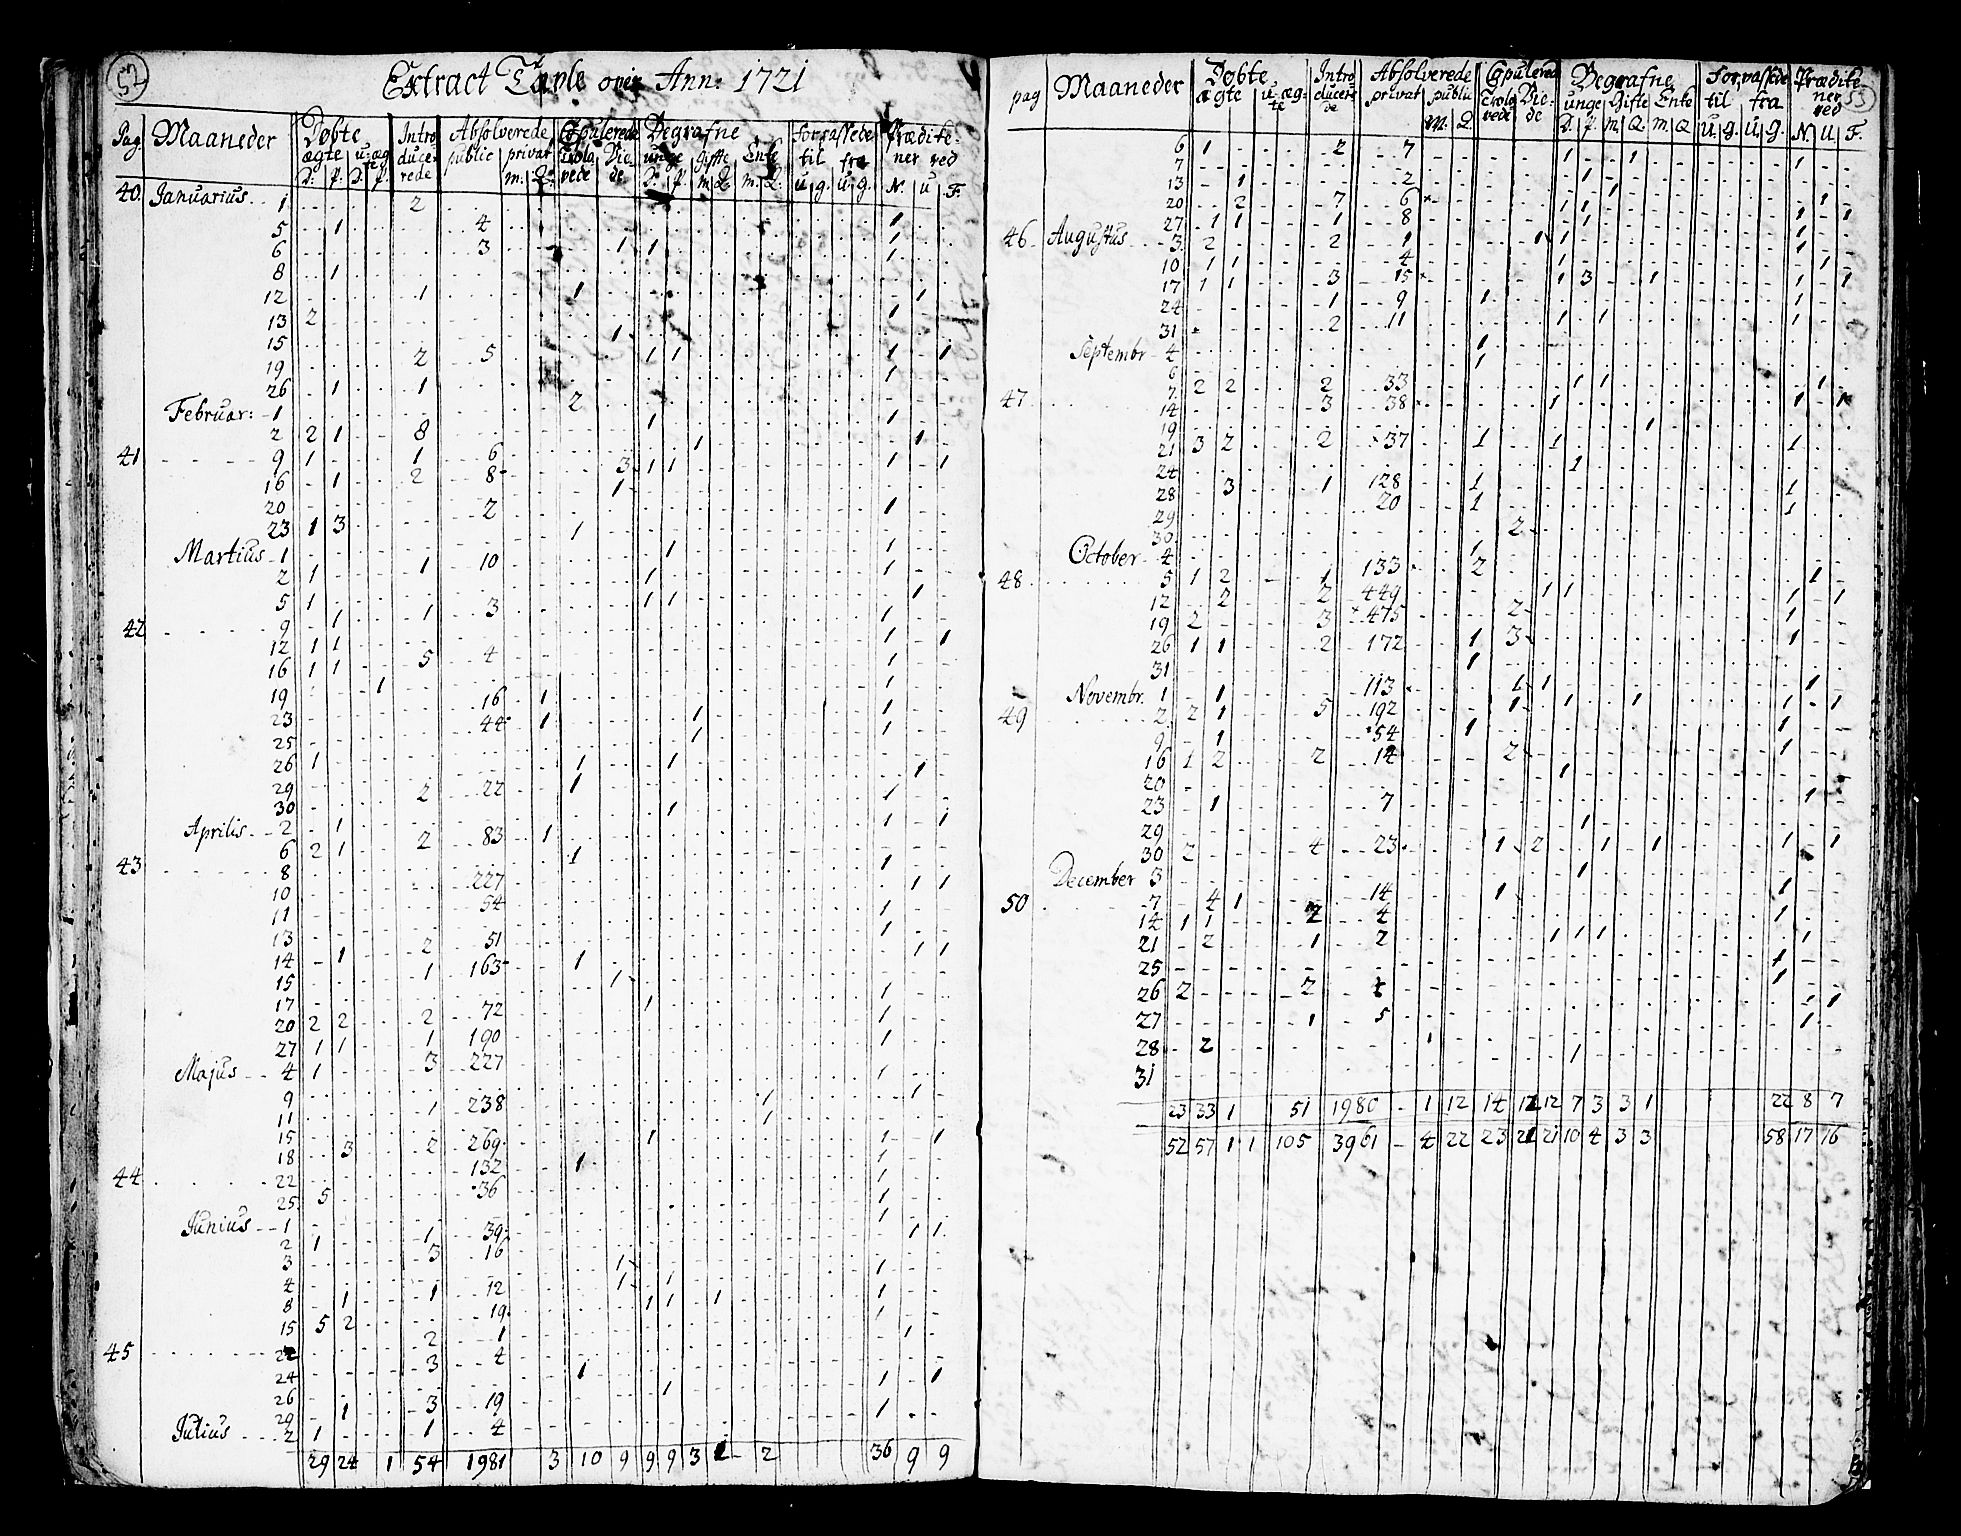 52
Extract Tavle over Ann: 1721
Pag Maaneder Døbte Intro Absolverede Copulerede Begrafne forvassede Prædike-
ægte u-æg te ducerede public privat Trolovede Viede unge Giffte Enke til fra ner ved
D. P. D. P. m. Q. D. P. m Q m. Q. u g. u. g. N. u F.
40. Januarius 1 2
5 1 4 1
6 3 1 1 1
8 1 1
12 1 1 1
13 2 1
15 1
19 2 5 1 1 1 1
26 1 1 1
Februar: 1 2
2 2 1 8 1 1
41 9 1 1 6 1 1
16 1 2 8 3 1 1 1 1
20 1
23 1 3 2 1
Martius 1 1
2 1 1 10 1 1
5 1 1 1
42 9 1 1 3 1 1 1
12 1 1 1
16 1 1 5 4 1
19 1 1
23 16 1 1
25 44 1 1 1
26 1 1
29 1 1 1
30 2 22 1 1
Aprilis 2 1 1
6 2 1 2 83 1 1 1
43 8 1
10 227 1
11 54 1 1
13 51 1
14 1 2 163 1
15 1 1 1
17 1
20 2 2 2 72 1 1
27 1 1 1 190 1
Majus 4 1 3 227 1
9 1
11 1 238 1 1
15 1
18 3 2 269 1 1 1
44 22 132 1 1
25. 5 36 1
Junius 1 1
2 1 1 39 1 1
3 3 16
4 1 1
8 1 1 12 1 1 1
15 5 2 19. 1 1 1 1
45 22 2 1 1
24 3 4 1
26 1 1
29 1 3 19 1
Julius 2 1 1 4
29 24 1 54 1981 3 10 9 9 9 3 2 36 9 9
pag Maaneder Døbte Intro Absolverede Copulered Begrafne forvassede Prædike
53
ægte u-æg-te ducerede privat public Trolovede Viede unge Gifte Enke til fra ner ved
M. Q. D. P. m. Q. m. Q u. g. u. g. N. U. F.
6 1 2 7 1 1 1
7 1
13 1 2 1 1
20 2 7 6 1 1
27 1 1 1 8 1 1 1
46 Augustus 3 2 2 1 1 1 1
10 1 1 4 1 1
17 1 1 3 15 1 3 1 1 1
24 1 9 1 1
31 2 11 1 1 1
Septembr 4 1
6 1
47 7 2 2 2 33 1 1 1
14 3 38 1 1 1
19 1
21 3 2 2 37 1 1 1
24 1
28 3 1 128 1 1
29 20 1 1
30 2
October 4 1
48 5 1 2 1 133 2 1
12 2 2 449 1 1 1 1
19 2 3 475 2 1
26 1 1 2 172 1 3 1
31 1
Novembr. 1 1 113 1 1 1
49 2 2 1 5 192 1 1 1 1 1
9 1 54 1 1
16 1 2 2 14 2 1
20 1
23 1 7 1
29 1
30 2 4 23 1 2 1 1 1 1
December 3 1
50 7 4 1 14 1 1
14 1 1 2 4 1
21 2 1 2 1 1 1 1
25 1
26 2 2 1
27 1 5 1 1
28 2 1 1
31 1
23 33 1 51 1980 - 1 12 14 12 12 7 3 3 1 22 8 7
52 57 1 1 105 3961 - 4 22 23 21 21 10 4 3 3 58 17 16